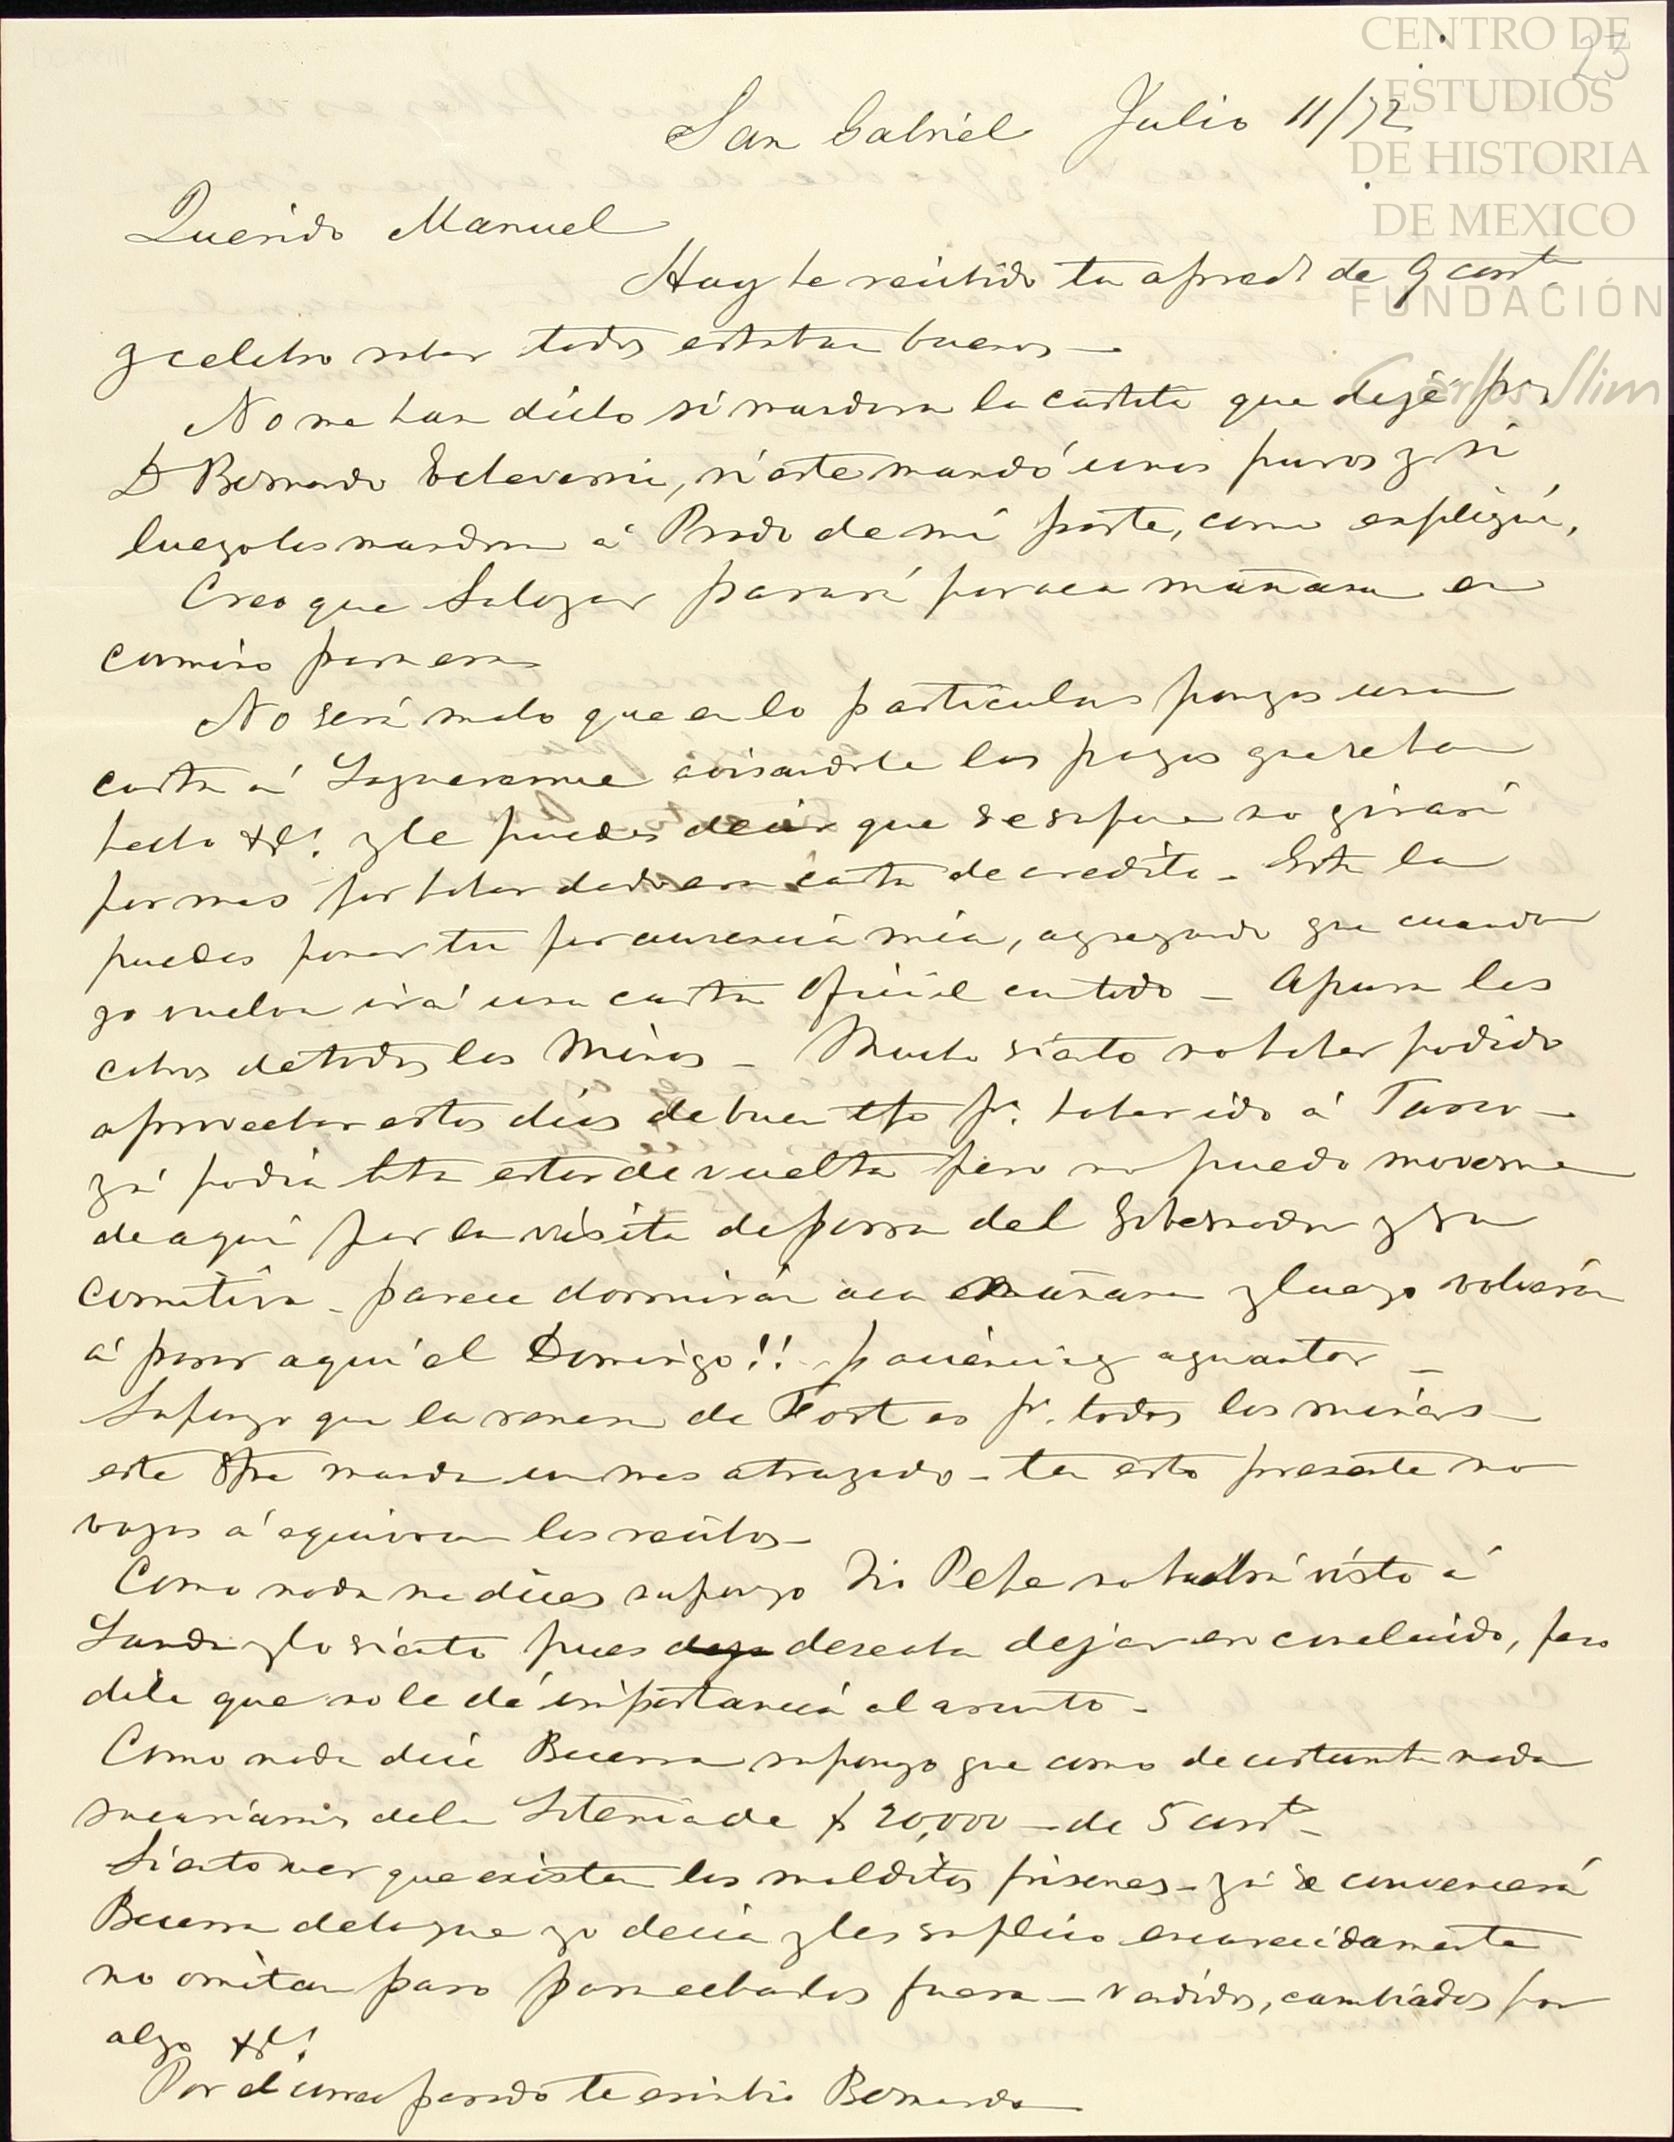 CENTRO DE
ESTUDIOS
DE HISTORIA
DE MEXICO
FUNDACIÓN
Carlos Slim
23
San Gabriel Julio 11/72
Querido Manuel
Hoy he recibido tu apred de 9 corrte
y celebro saber todos estaban buenos —
No me han dicho si mandaron la cartita que dejé par
D Bernardo Echeverria, si este mandó unos puros y si
luego los mandaron á Prado de mi parte, como expliqué,
Creo que Salazar pasará por aca mañana en
camino para esa
No será malo que en lo particular pongas una
carta á avisandole los pagos que se han
hecho &a. y le puedes decir que se supone no girará
por mas por haber dado esa carta de credito — Esta la
puedes poner tu por ausencia mia, agregando que cuando
yo vuelva irá una carta oficial en todo — Apura los
cobros de todas las Minas — Mucho siento no haber podido
aprovechar estos dias de buen tpo pa. haber ido á Tasco —
ya podia hta estar de vuelta pero no puedo moverme
de aqui por la visita de porra del Gobernador y su
comitiva — parece dormirán aca mañana y luego volverán
á parar aqui el Domingo!! — paciencia y aguantar —
Supongo que la remesa de Fort es pa. todas las minas —
este spre manda un mes atrazado — ten esto presente no
vayas á equivocar los recibos —
Como nada me dices supongo Tio Pepe no habrá visto á
Landa y lo siento pues deseaba dejar eso concluido, pero
dile que no le dé importancia al asunto —
Como nada dice Becerra supongo que como de costumbre nada
sacariamos de la Loteria de $ 20,000 — de 5 corrte —
Siento ver que existen los malditos frisones — ya se convencerá
Becerra de lo que yo decia y les suplico encarecidamente
no omitan paso para echarlos fuera — vendidos, cambiados por
algo &a.
Por el correo pasado te escribio Bernardo